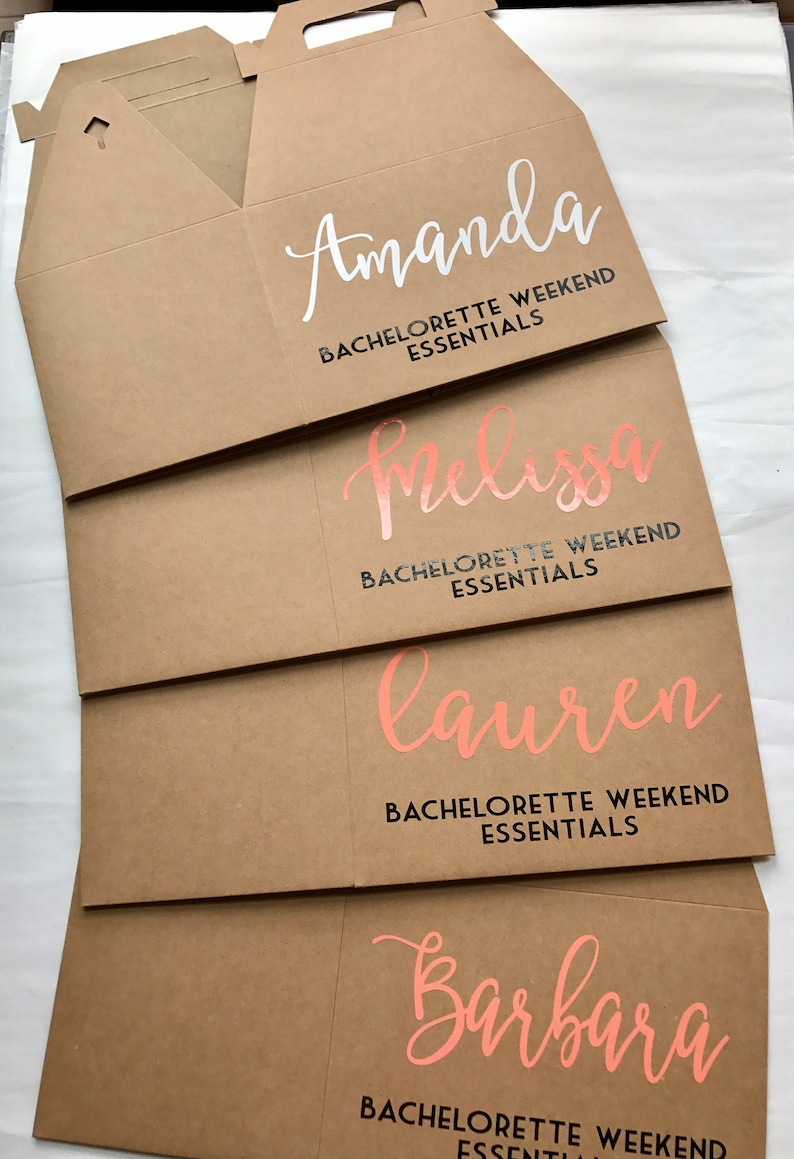 Amanda
BACHELORETTE WEEKEND
ESSENTIALS
Melissa
BACHELORETTE WEEKEND
ESSENTIALS
lauren
BACHELORETTE WEEKEND
ESSENTIALS
Barbara
BACHELORETTE WEEKEND
ESSENTIALS